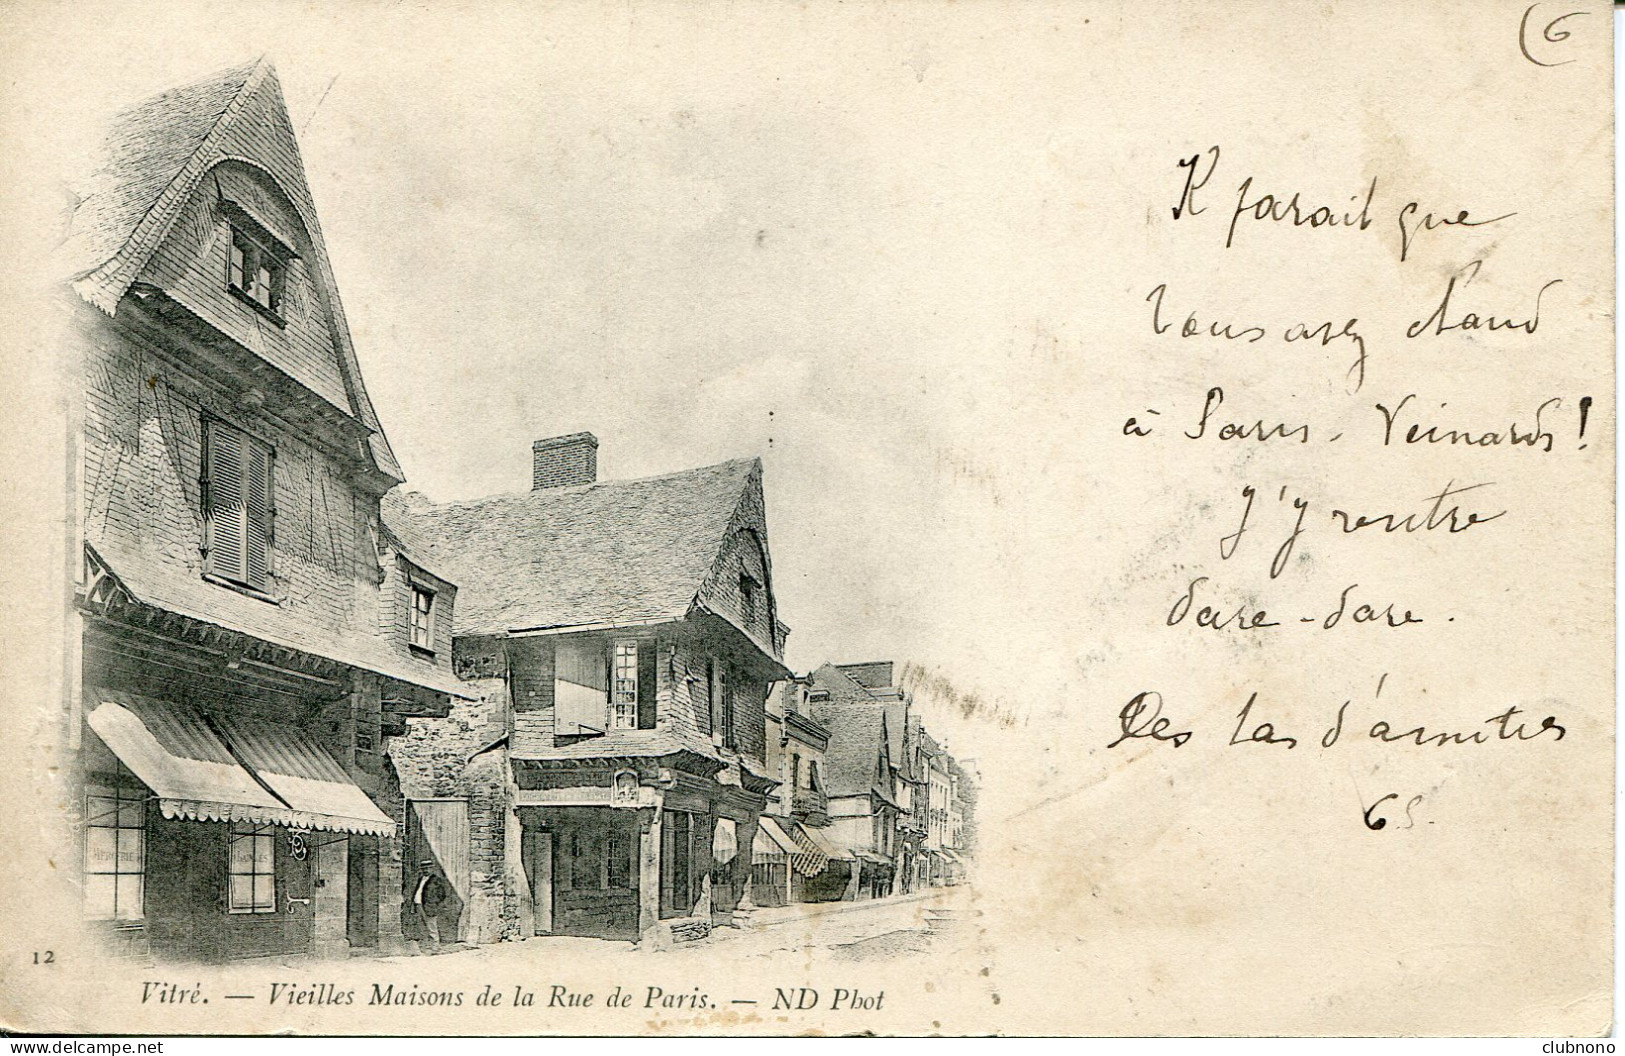 (6
Il parait que
vous avez chaud
à Paris. Veinards!
J'y rentre
dare-dare.
Des tas d'amitiés
12
Vitré. — Vieilles Maisons de la Rue de Paris. — ND Phot
delcampe.net
clubnono